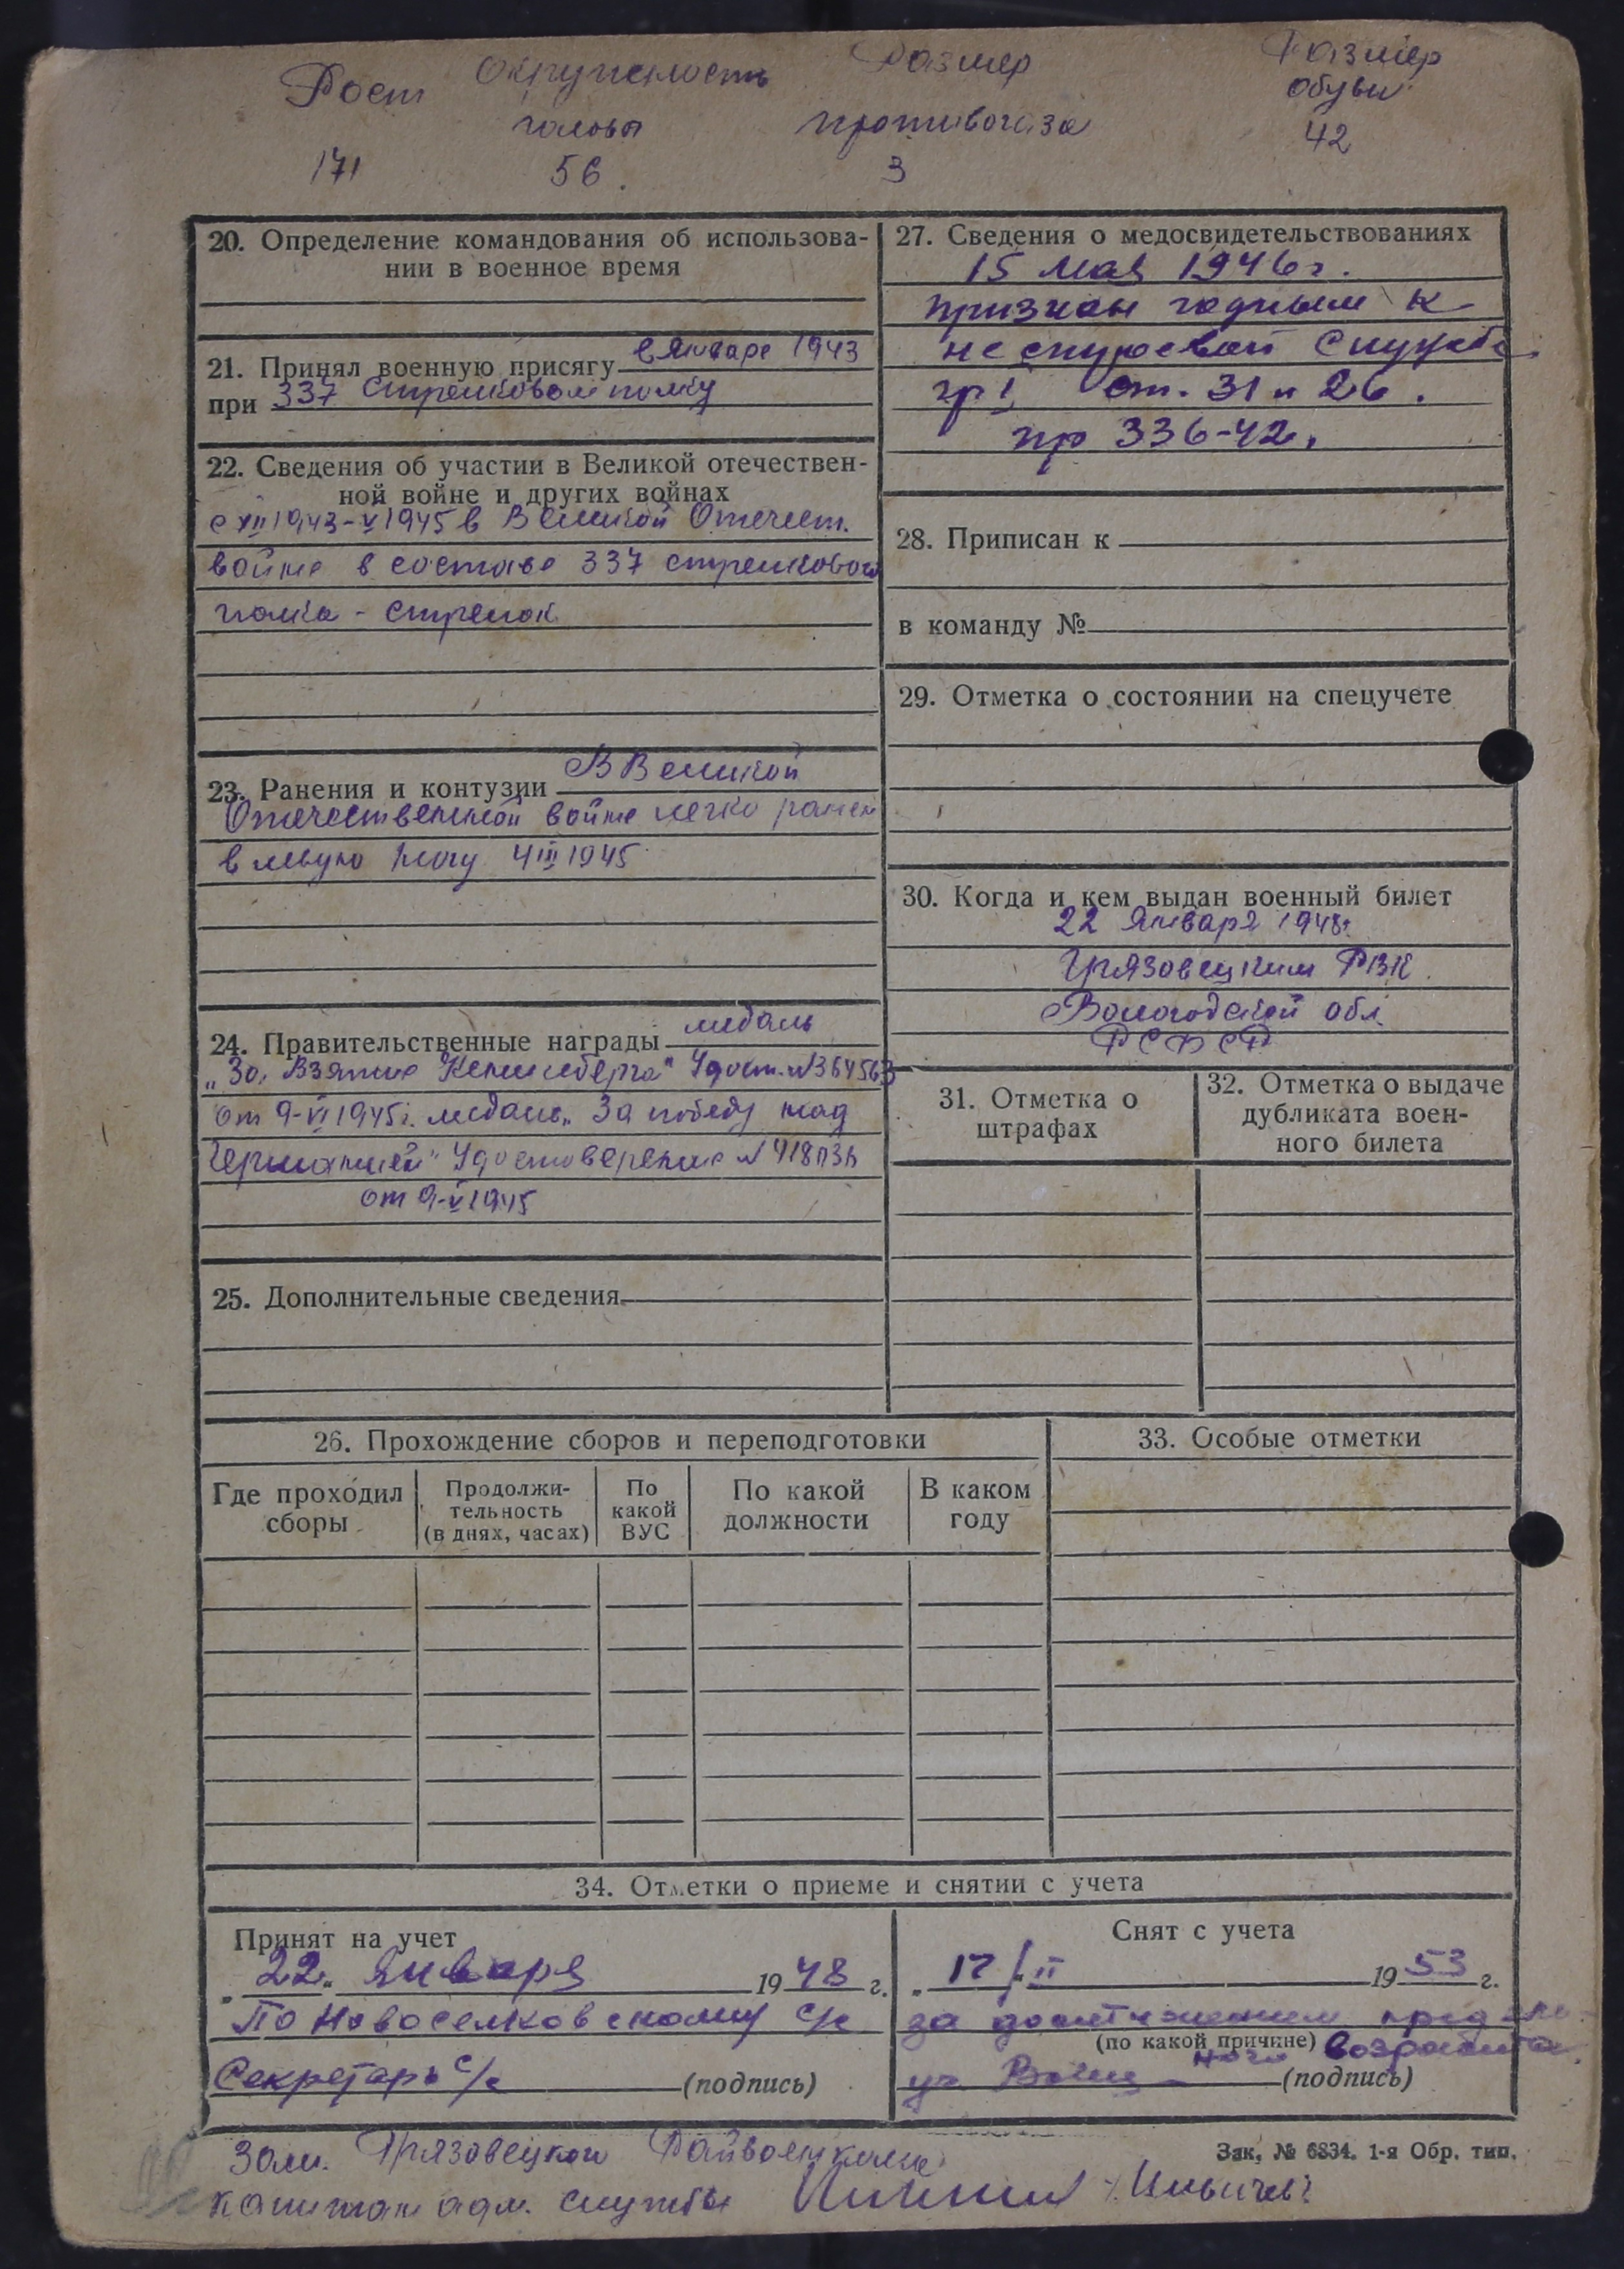 Рост Окружность Размер Размер
головы противогаза обуви
171 56. 3 42
20. Определение командования об использова-
нии в военное время
21. Принял военную присягу в Январе 1943
при 337 Стрелковом полку
22. Сведения об участии в Великой отечествен-
ной войне и других войнах
с XII 1943-V 1945 в Великой Отечест.
войне в составе 337 стрелкового
полка - стрелок
23. Ранения и контузии В Великой
Отечественной войне легко ранен
в левую ногу 4 III 1945
24. Правительственные награды медаль
„За Взятие Кенигсберга" Удост. №364563
от 9-VI 1945г. медаль „За победу над
Германией" Удостоверение №
от 9-V 1945
25. Дополнительные сведения
27. Сведения о медосвидетельствованиях
15 мая 1946г.
признан годным к
нестроевой Службе
гр I, ст. 31 и 26.
пр 336-42.
28. Приписан к
в команду №
29. Отметка о состоянии на спецучете
30. Когда и кем выдан военный билет
22 Января 1948г.
Грязовецким РВК.
Вологодской обл.
РСФСР
31. Отметка о
штрафах
32. Отметка о выдаче
дубликата воен-
ного билета
26. Прохождение сборов и переподготовки
Где проходил
сборы
Продолжи-
тельность
(в днях, часах)
По
какой
ВУС
По какой
должности
В каком
году
33. Особые отметки
34. Отметки о приеме и снятии с учета
Принят на учет
„22" Января 1948 г.
По Новоселковскому с/с
Секретарь с/с (подпись)
Снят с учета
„17/II 1953 г.
за достижением предель-
(по какой причине) ного возраста
(подпись)
Зам. Грязовецкого Райвоенкома
капитан адм. службы /Ильичев/
Зак. № 6834. 1-я Обр. тип.